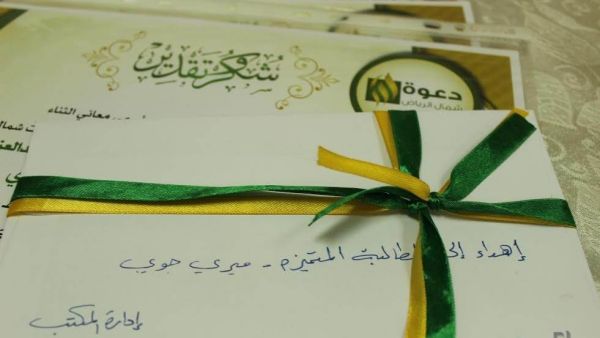 شكر وتقدير
دعوة
شمال الرياض
معاني الثناء
إهداء إلى الطالبة المتميزة - ميري جوي
إدارة المكتب